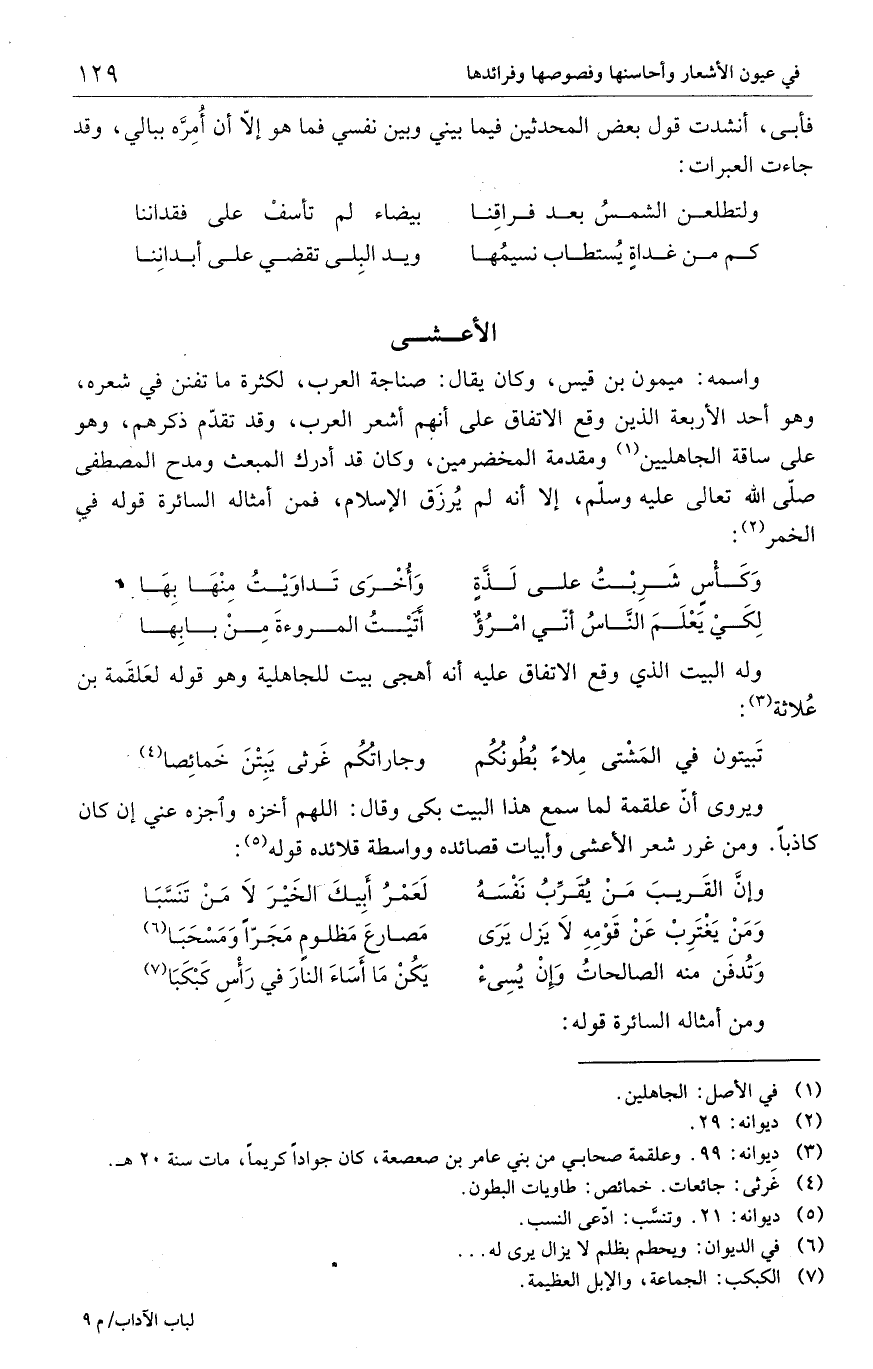 في عيون الأشعار وأحاسنها وفصوصها وفرائدها ١٢٩
فأبى، أنشدت قول بعض المحدثين فيما بيني وبين نفسي فما هو إلاّ أن أُمِرَّه ببالي، وقد
جاءت العبرات:
ولتطلعن الشمسُ بعد فراقِنا بيضاء لم تأسفْ على فقداننا
كم من غداةٍ يُستطاب نسيمُها ويد البِلى تقضي على أبدانِنا
الأعشى
واسمه: ميمون بن قيس، وكان يقال: صناجة العرب، لكثرة ما تفنن في شعره،
وهو أحد الأربعة الذين وقع الاتفاق على أنهم أشعر العرب، وقد تقدّم ذكرهم، وهو
على ساقة الجاهليين(١) ومقدمة المخضرمين، وكان قد أدرك المبعث ومدح المصطفى
صلّى الله تعالى عليه وسلّم، إلا أنه لم يُرزَق الإسلام، فمن أمثاله السائرة قوله في
الخمر(٢):
وَكَأسٍ شَرِبْتُ على لَذَّةٍ وَأُخْرَى تَداوَيْتُ مِنْهَا بِهَا
لِكَيْ يَعْلَمَ النَّاسُ أنّي امْرُؤٌ أَتَيْتُ المروءةَ مِنْ بابِها
وله البيت الذي وقع الاتفاق عليه أنه أهجى بيت للجاهلية وهو قوله لعَلقَمة بن
عُلاثة(٣):
تَبيتون في المَشْتى مِلاءً بُطُونُكُم وجاراتُكُم غَرثى يَبِتْنَ خَمائِصا(٤)
ويروى أنّ علقمة لما سمع هذا البيت بكى وقال: اللهم أخزه وآجزه عني إن كان
كاذباً. ومن غرر شعر الأعشى وأبيات قصائده وواسطة قلائده قوله(٥):
وإنَّ القَريبَ مَنْ يُقَرِّبُ نَفْسَهُ لَعَمْرُ أَبِيكَ الخَيْرَ لَا مَنْ تَنَسَّبَا
وَمَنْ يَغْتَرِبْ عَنْ قَوْمِهِ لَا يَزل يَرَى مَصارِعَ مَظلومٍ مَجَرّاً وَمَسْحَبَا(٦)
وَتُدفَن منه الصالحاتُ وَإنْ يُسِيءْ يَكُنْ مَا أَسَاءَ النارَ في رَأْسِ كَبْكَبَا(٧)
ومن أمثاله السائرة قوله:
(١) في الأصل: الجاهلين.
(٢) ديوانه: ٢٩.
(٣) ديوانه: ٩٩. وعلقمة صحابي من بني عامر بن صعصعة، كان جواداً كريماً، مات سنة ٢٠ هـ.
(٤) غَرثى: جائعات. خمائص: طاويات البطون.
(٥) ديوانه: ٢١. وتنسَّب: ادّعى النسب.
(٦) في الديوان: ويحطم بظلم لا يزال يرى له...
(٧) الكبكب: الجماعة، والإبل العظيمة.
لباب الآداب/ م ٩